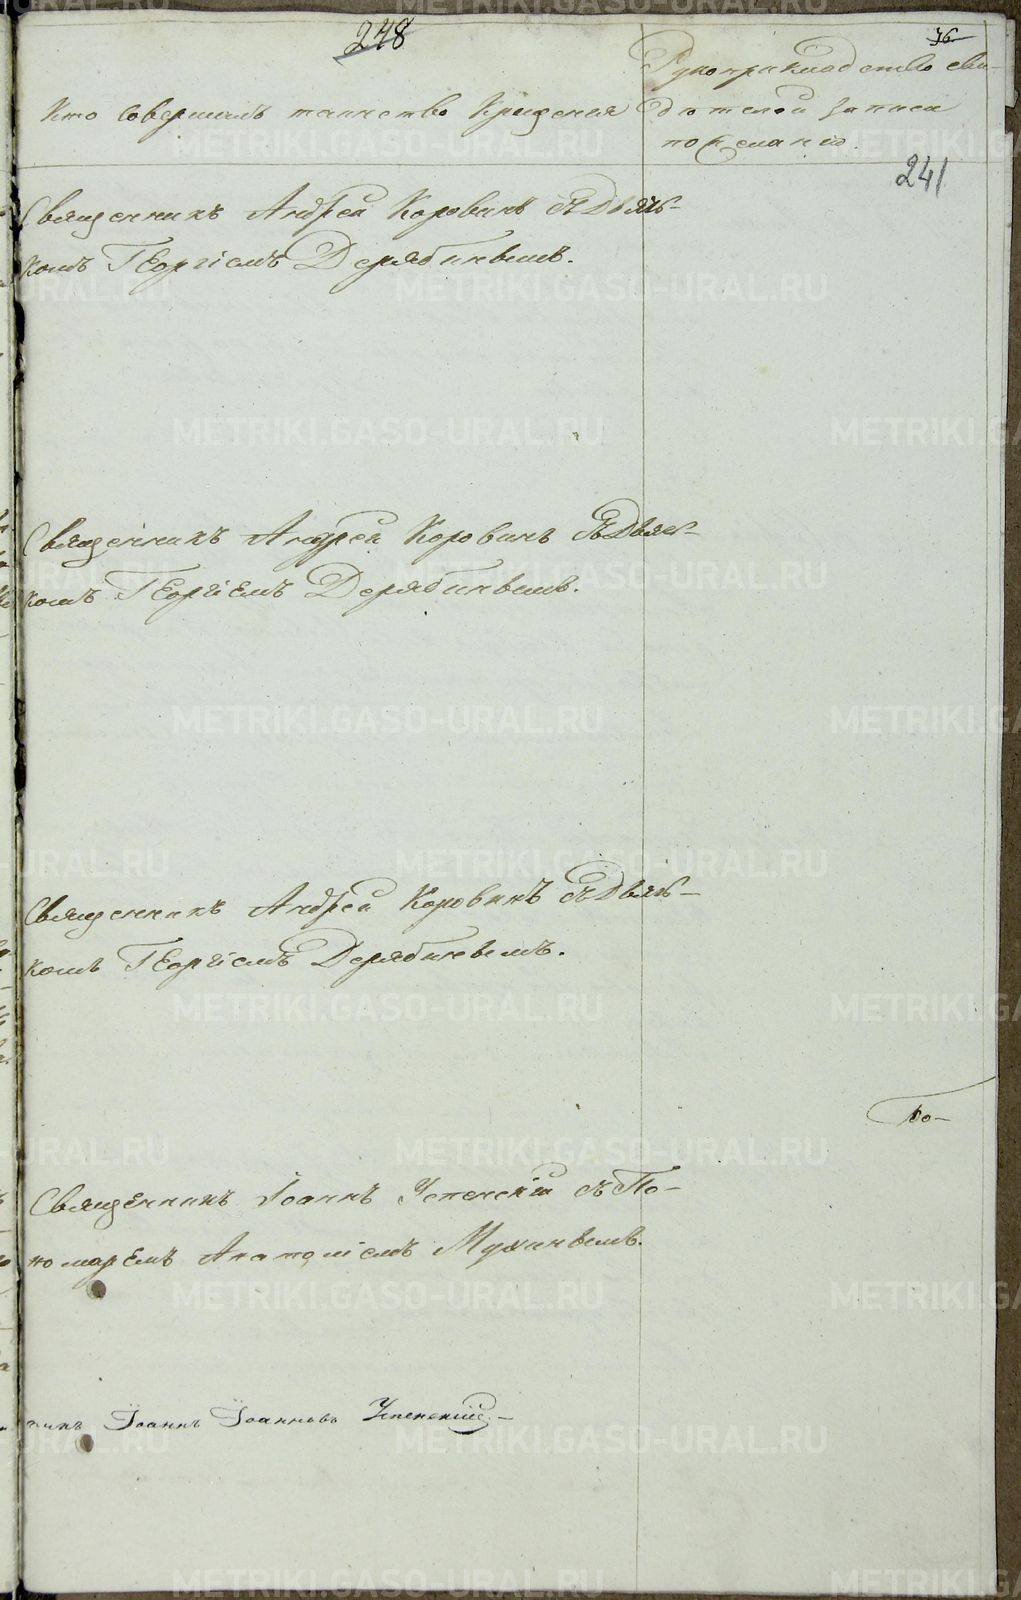 248
36
Рукоприкладство сви-
Кто совершалъ таинство Крещенія
дѣтелей записи
по желанію.
241
Священникъ Андрей Коровинъ съ Дьяч-
комъ Георгіемъ Дерябинымъ.
Священникъ Андрей Коровинъ съ Дьяч-
комъ Георгіемъ Дерябинымъ.
Священникъ Андрей Коровинъ съ Дьяч-
комъ Георгіемъ Дерябинымъ.
По-
Священникъ Іоаннъ Успенскій съ По-
номаремъ Анатоліемъ Мухинымъ.
никъ Іоаннъ Іоанновъ Успенскій.-
METRIKI.GASO-URAL.RU